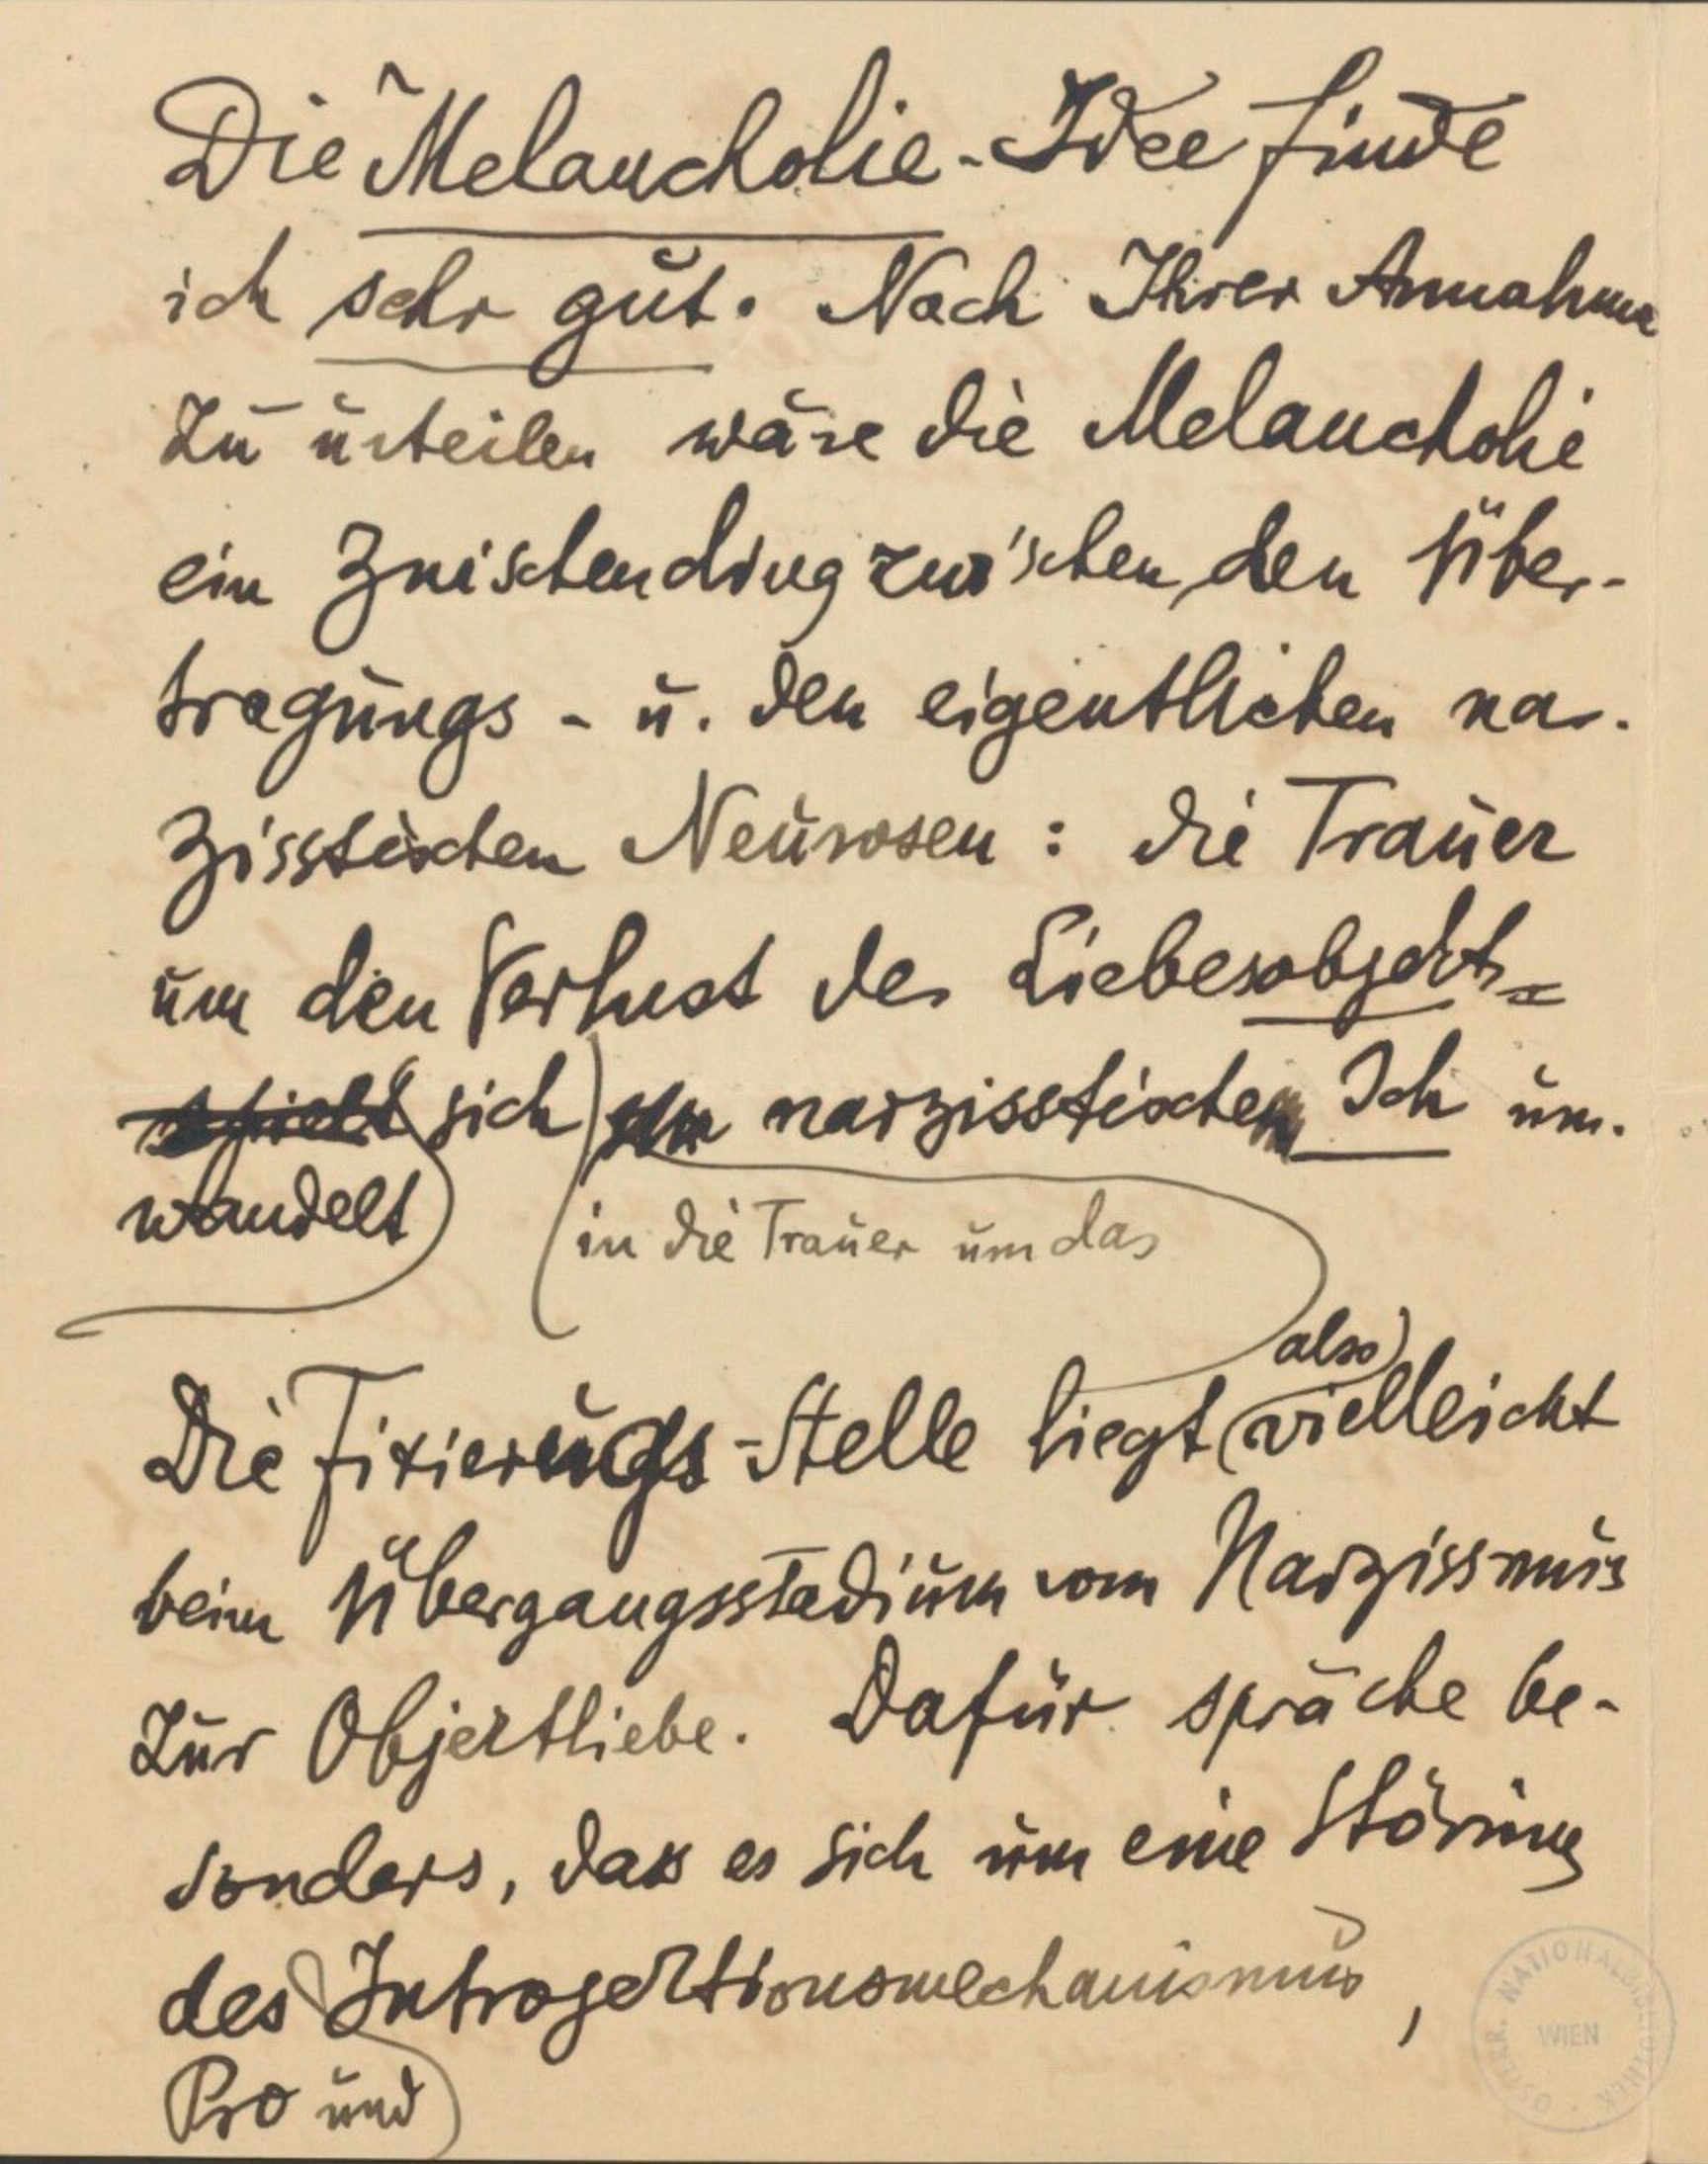 Die Melancholie-Idee finde
ich sehr gut. Nach Ihrer Annahme
zu urteilen wäre die Melancholie
ein Zwischending zwischen den Über-
tragungs- u. den eigentlichen nar-
zisstischen Neurosen: die Trauer
um den Verlust des Liebesobjekts=
spielt sich narzisstischen Ich um.
wandelt
in die Trauer um das
also
Die Fixierungs-Stelle liegt vielleicht
beim Übergangsstadium vom Narzissmus
zur Objectliebe. Dafür spräche be-
sonders, dass es sich um eine Störung
des Introjektionsmechanismus,
Pro und
ÖSTERR. NATIONALBIBLIOTHEK
WIEN